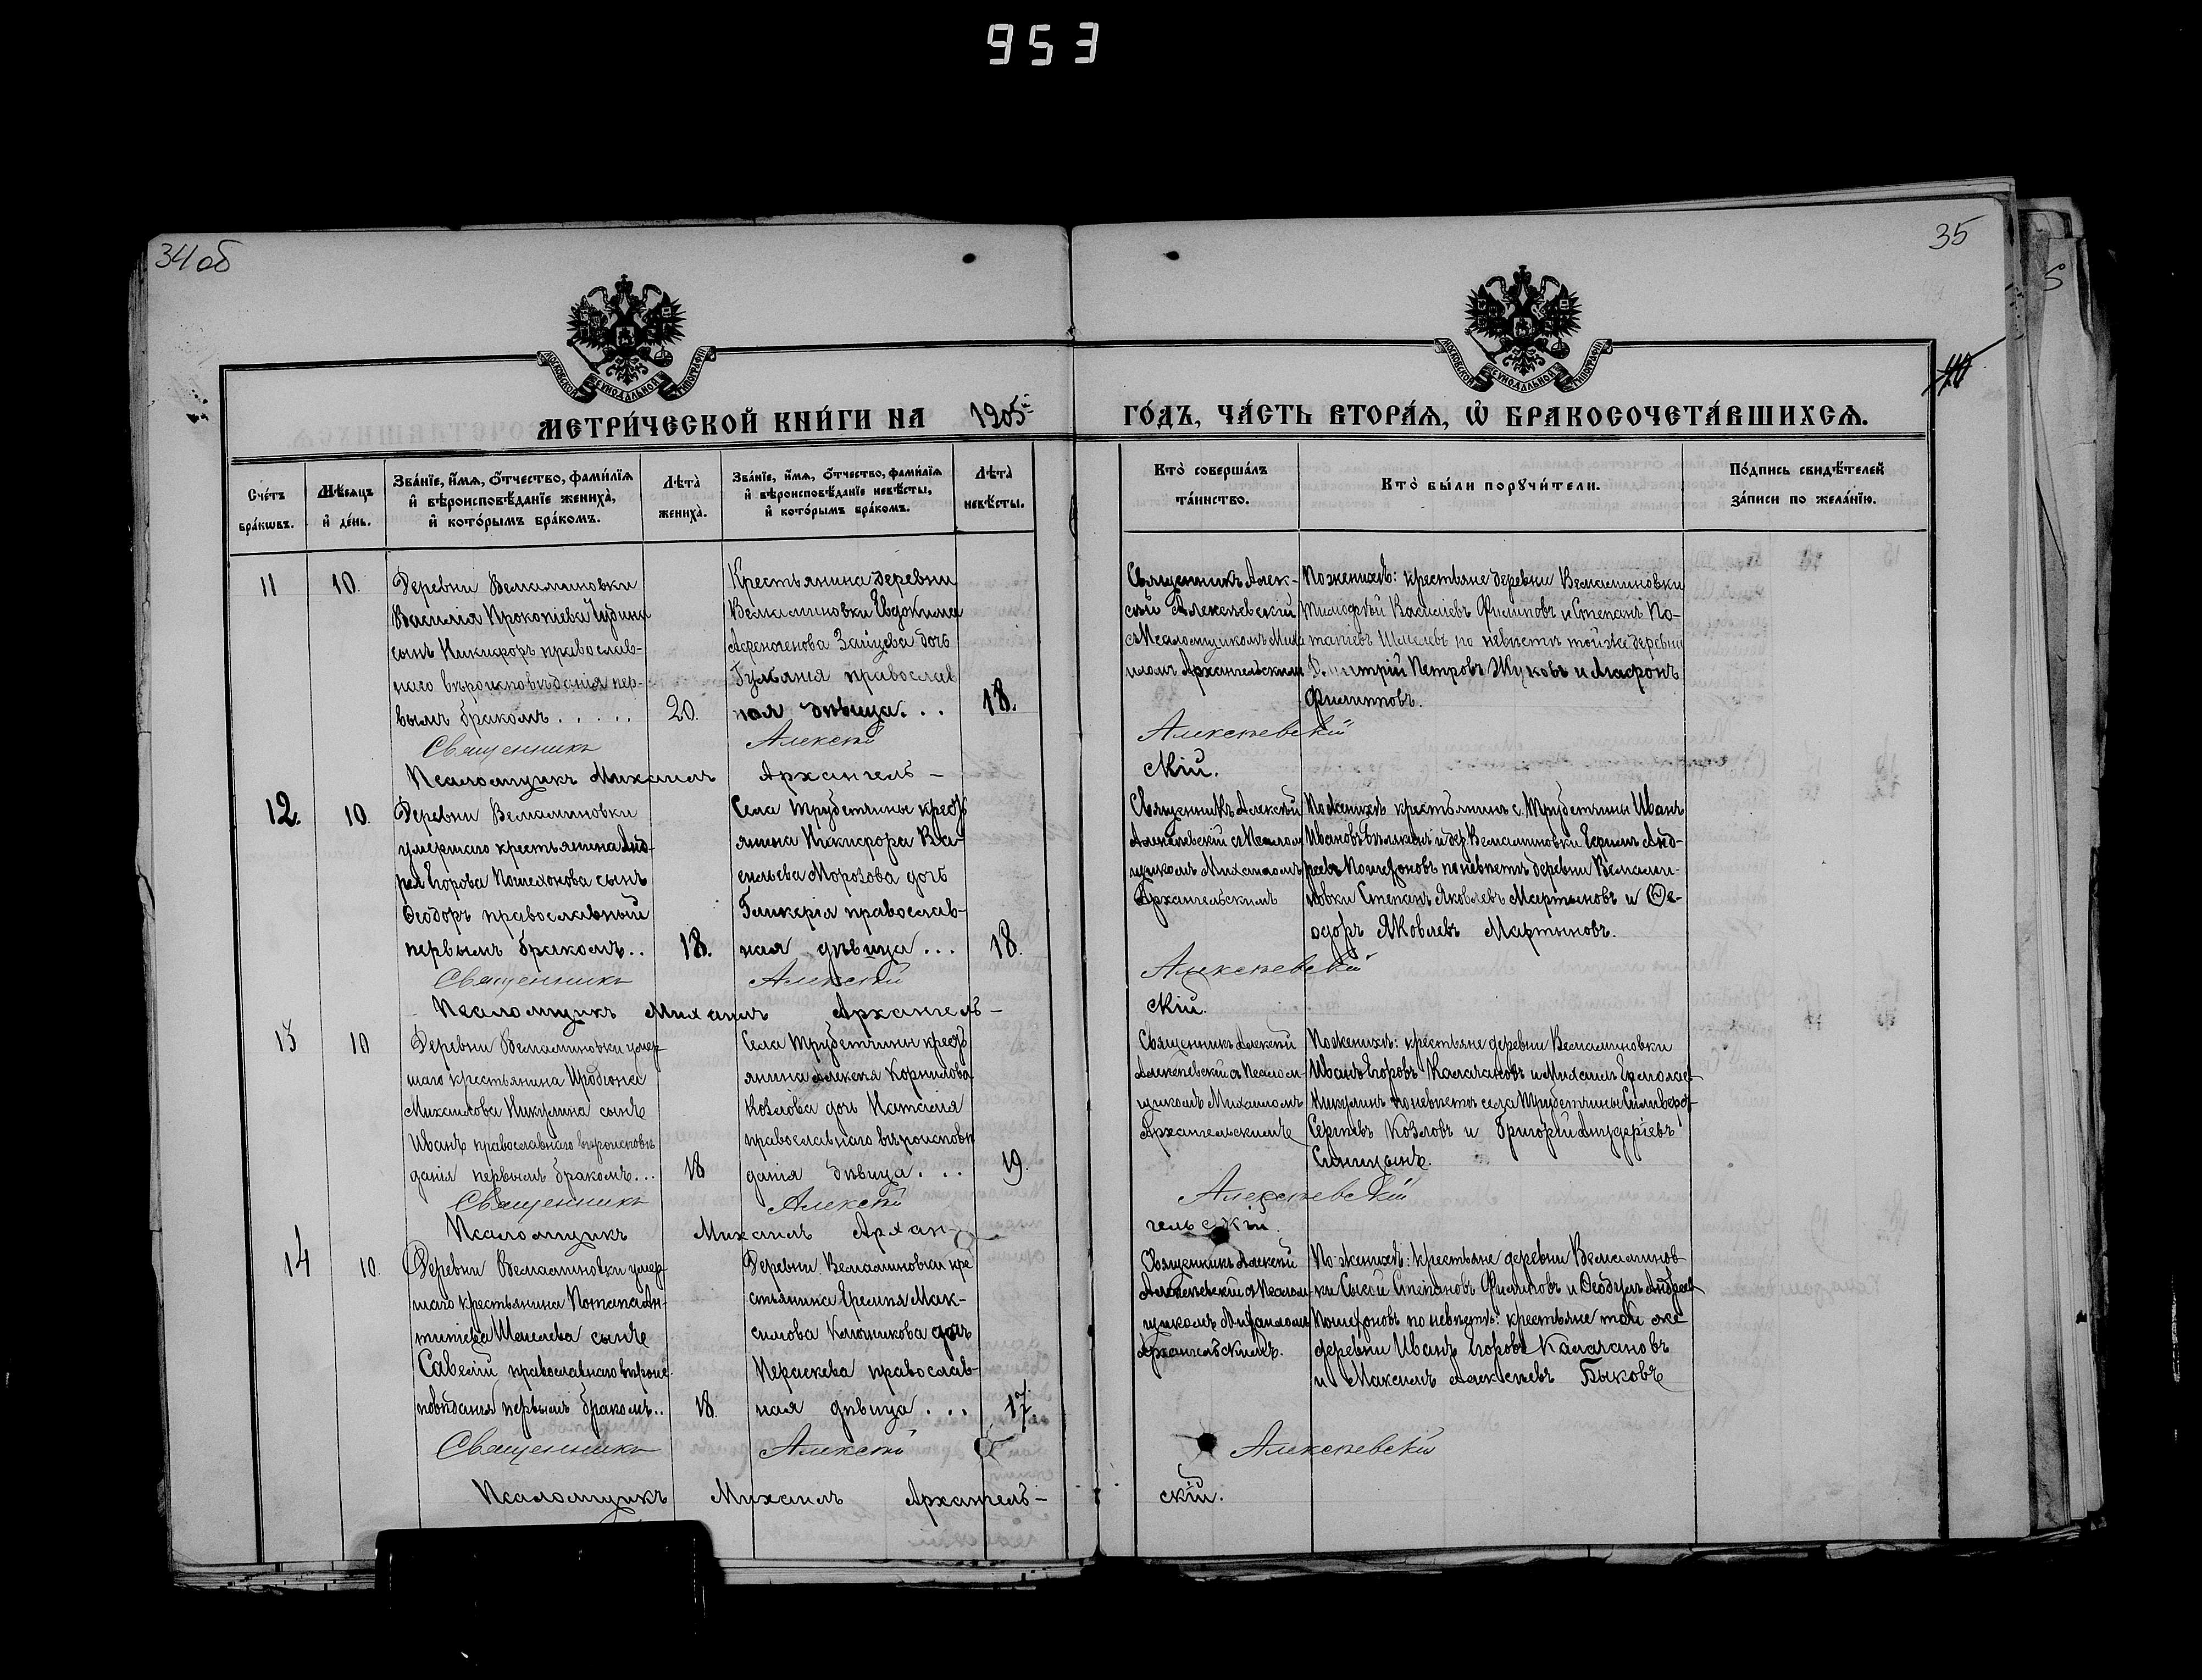 953
34 об
35
МОСКОВСКОЙ СѴНОДАЛЬНОЙ ТИПОГРАФІИ
МОСКОВСКОЙ СѴНОДАЛЬНОЙ ТИПОГРАФІИ
МЕТРИ́ЧЕСКОЙ КНИ́ГИ НА 1905й
ГО́ДЪ, ЧА́СТЬ ВТОРА́Ѧ, Ѡ҆ БРАКОСОЧЕТА́ВШИХСѦ.
Сче́тъ бра́кѡвъ.
Мѣ́сѧцъ и҆ де́нь.
Зва́нїе, и҆́мѧ, ѻ҆́тчество, фами́лїѧ
и҆ вѣроисповѣ́данїе жениха̀,
и҆ кото́рымъ бра́комъ.
Лѣта̀ жениха̀.
Зва́нїе, и҆́мѧ, ѻ҆́тчество, фами́лїѧ
и҆ вѣроисповѣ́данїе невѣ́сты,
и҆ кото́рымъ бра́комъ.
Лѣта̀ невѣ́сты.
Кто̀ соверша́лъ
та́инство.
Кто̀ бы́ли порꙋчи́тели.
По́дпись свидѣ́телей
за́писи по жела́нїю.
11
10.
Деревни Вельяминовки
Василія Прокопіева Чудина
сынъ Никифоръ православ-
наго вѣроисповѣданія пер-
вымъ бракомъ . . . . .
20.
Крестьянина деревни
Вельяминовки Евдокима
Зайцева дочь
православ
ная дѣвица. . .
18.
Священникъ Алек-
сѣй Алексѣевскій
съ Псаломщикомъ Миха
иломъ Архангельскимъ
По женихѣ: крестьяне деревни Вельяминовки
Тимофѣй Васильевъ Филиповъ и Степанъ По-
тапіевъ Шмелевъ по невѣстѣ той же деревни
Димитрій Петровъ Жуковъ и
Филипповъ.
Священникъ Алексѣй Алексѣевскій
Псаломщикъ Михаилъ Архангель-
скій.
12.
10.
Деревни Вельяминовки
умершаго крестьянина Анд-
рея Егорова Пошехонова сынъ
Ѳеодоръ православный
первымъ бракомъ . .
18.
Села Трубетчины крест
янина Никифора Ва
сильева Морозова дочь
Гликерія православ-
ная дѣвица . . .
18.
Священникъ Алексѣй
Алексѣевскій съ Псалом
щикомъ Михаиломъ
Архангельскимъ
По женихѣ крестьянинъ с. Трубетчины Иванъ
Ивановъ и дер. Вельяминовки Анд-
реевъ Пошехоновъ по невѣстѣ деревни Вельями-
новки Степанъ Яковлевъ Мартыновъ и Ѳе-
одоръ Яковлевъ Мартыновъ.
Священникъ Алексѣй Алексѣевскій
Псаломщикъ Михаилъ Архангель-
скій.
13
10
Деревни Вельяминовки умер
шаго крестьянина Иродіона
Михаилова Никулина сынъ
Иванъ православнаго вѣроисповѣ
данія первымъ бракомъ . . .
18
Села Трубетчины крест
янина Алексѣя Корнилова
Козлова дочь Наталія
православнаго вѣроисповѣ
данія дѣвица . . .
19.
Священникъ Алексѣй
Алексѣевскій съ Псалом-
щикомъ Михаиломъ
Архангельскимъ
По женихѣ: крестьяне деревни Вельяминовки
Иванъ Егоровъ Калачановъ и Михаилъ Ермолаев
Никулинъ по невѣстѣ села Трубетчины Силиверст
Сергѣевъ Козловъ и Григорій
Синицынъ.
Священникъ Алексѣй Алексѣевскій
Псаломщикъ Михаилъ Архан-
гельскій.
14
10.
Деревни Вельяминовки умер
шаго крестьянина Потапа Ан-
типіева Шмелева сынъ
Савелій православнаго вѣроис-
повѣданія первымъ бракомъ . .
18.
Деревни Вельяминовки кре
стьянина Еремія Мак-
симова Ключникова дочь
Параскева православ-
ная дѣвица . . .
17
Священникъ Алексѣй
Алексѣевскій съ Псалом-
щикомъ Михаиломъ
Архангельскимъ.
По женихѣ: крестьяне деревни Вельяминов-
ки Сысой Степановъ Филиповъ и Ѳеодулъ Андреев
Пошехоновъ по невѣстѣ: крестьяне той же
деревни Иванъ Егоровъ Калачановъ
и Максимъ Алексѣевъ Быковъ
Священникъ Алексѣй Алексѣевскій
Псаломщикъ Михаилъ Архангель-
скій.